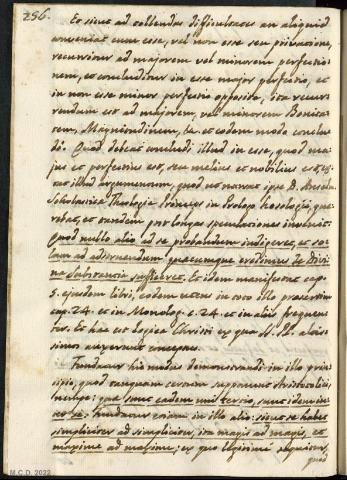 256.
Et sicut ad tollendas difficultates an aliquid
conveniat cum esse, vel non esse seu privatione,
recurritur ad majorem vel minorem perfectio-
nem, et concluditur in esse major perfectio, et
in non esse minor perfectio opposita, ita recur-
rendum est ad majorem, vel minorem Bonita-
tem, Magnitudinem, &a. et eodem modo conclu-
di: Quod debeat concludi illud in esse, quod ma-
jus et perfectius est, seu melius et nobilius est,
illud argumentum, quod ut narrat ipse D. Anselm.
Scholasticæ Theologiæ Princeps in Prolog. Prosologij, quæ-
rebat, et tandem per longas speculationes invenit:
Quod nullo alio ad se probandum indigeret, et so-
lum ad adstruendum quæcumque credimus de Divi-
na Substantia sufficeret. Et idem manifeste cap.
5. ejusdem libri, eodem utens in toto illo præsertim
cap. 24. et in Monolog. c. 24. et in alijs frequen-
ter. Et hæc est Logica Christi ex qua
simos
Fundatur hic modus demonstrandi in illo prin-
cipio, quod tanquam verum supponunt Aristotelici,
nempe: quæ sunt eadem uni tertio, sunt idem in-
ter se. Fundatur etiam in illo alio: sicut se habet
simpliciter ad simpliciter, ita magis ad magis, et
maxime ad maxime; ex quo legitime sequitur,
quod
M.C.D. 2022